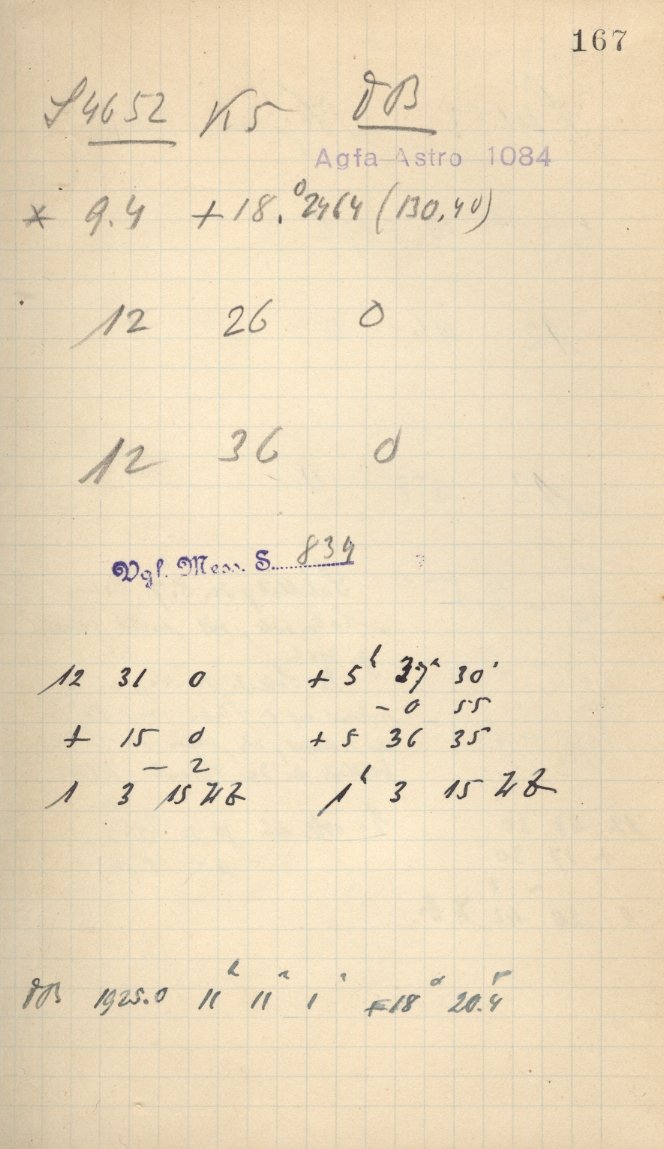 167
S4652 K5 DB
Agfa-Astro 1084
* 9.4 +18.°2464 (130,40)
12 26 0
12 36 0
Vgl. Mess. S. 834
12 31 0 + 5ʰ 37ᵐ 30ˢ
- 0 55
+ 15 0 + 5 36 35
- 2
1 3 15 1ʰ 3 15
DB 1925.0 11ʰ 11ᵐ 1ˢ +18° 20.4'